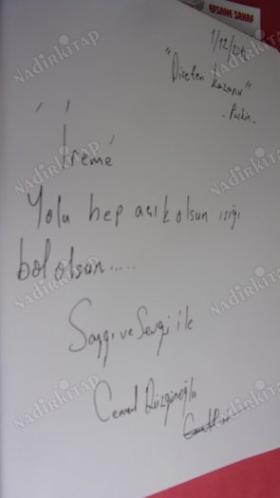 İNSANE SAHAF
1/12/20
"Direten kazanır"
- Puşkin -
İrem'e
Yolu hep açık olsun ışığı
bol olsun.....
Saygı ve Sevgi ile
Cemal Düzgünoğlu
NADİRKİTAP